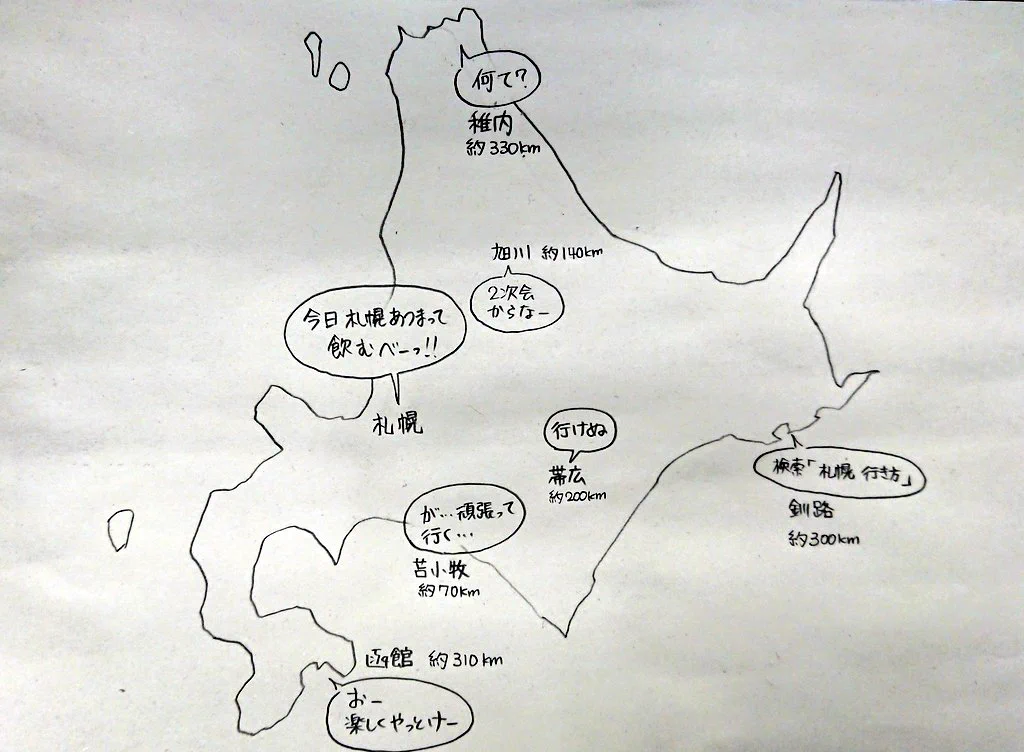 何て?
稚内
約330km
旭川 約140km
2次会
からなー
今日札幌あつまって
飲むべーっ!!
札幌
行けぬ
帯広
約200km
検索「札幌 行き方」
釧路
約300km
が…頑張って
行く…
苫小牧
約70km
函館 約310km
おー
楽しくやっとけー